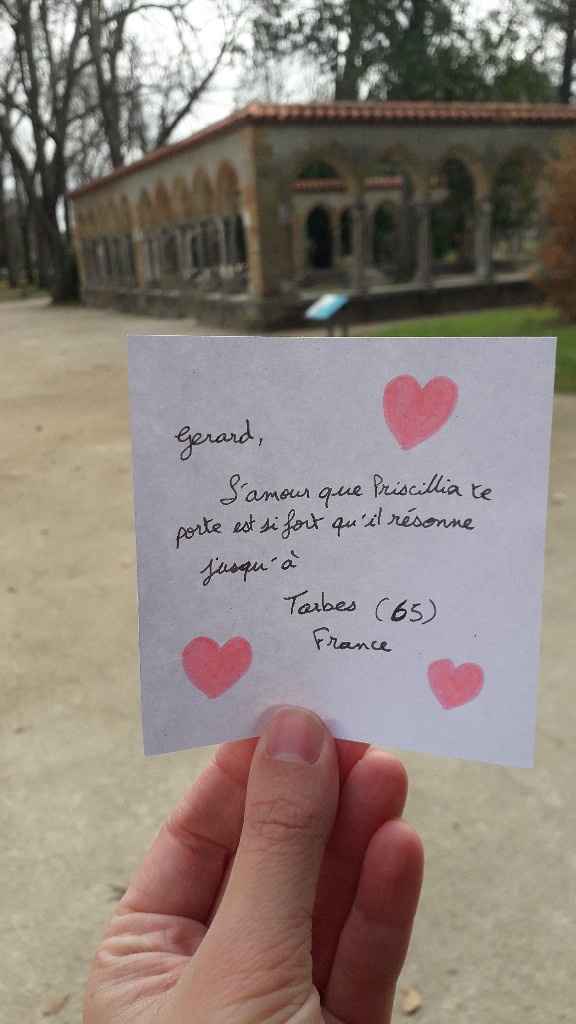 Gerard,
L'amour que Priscillia te
porte est si fort qu'il résonne
jusqu'à
Tarbes (65)
France